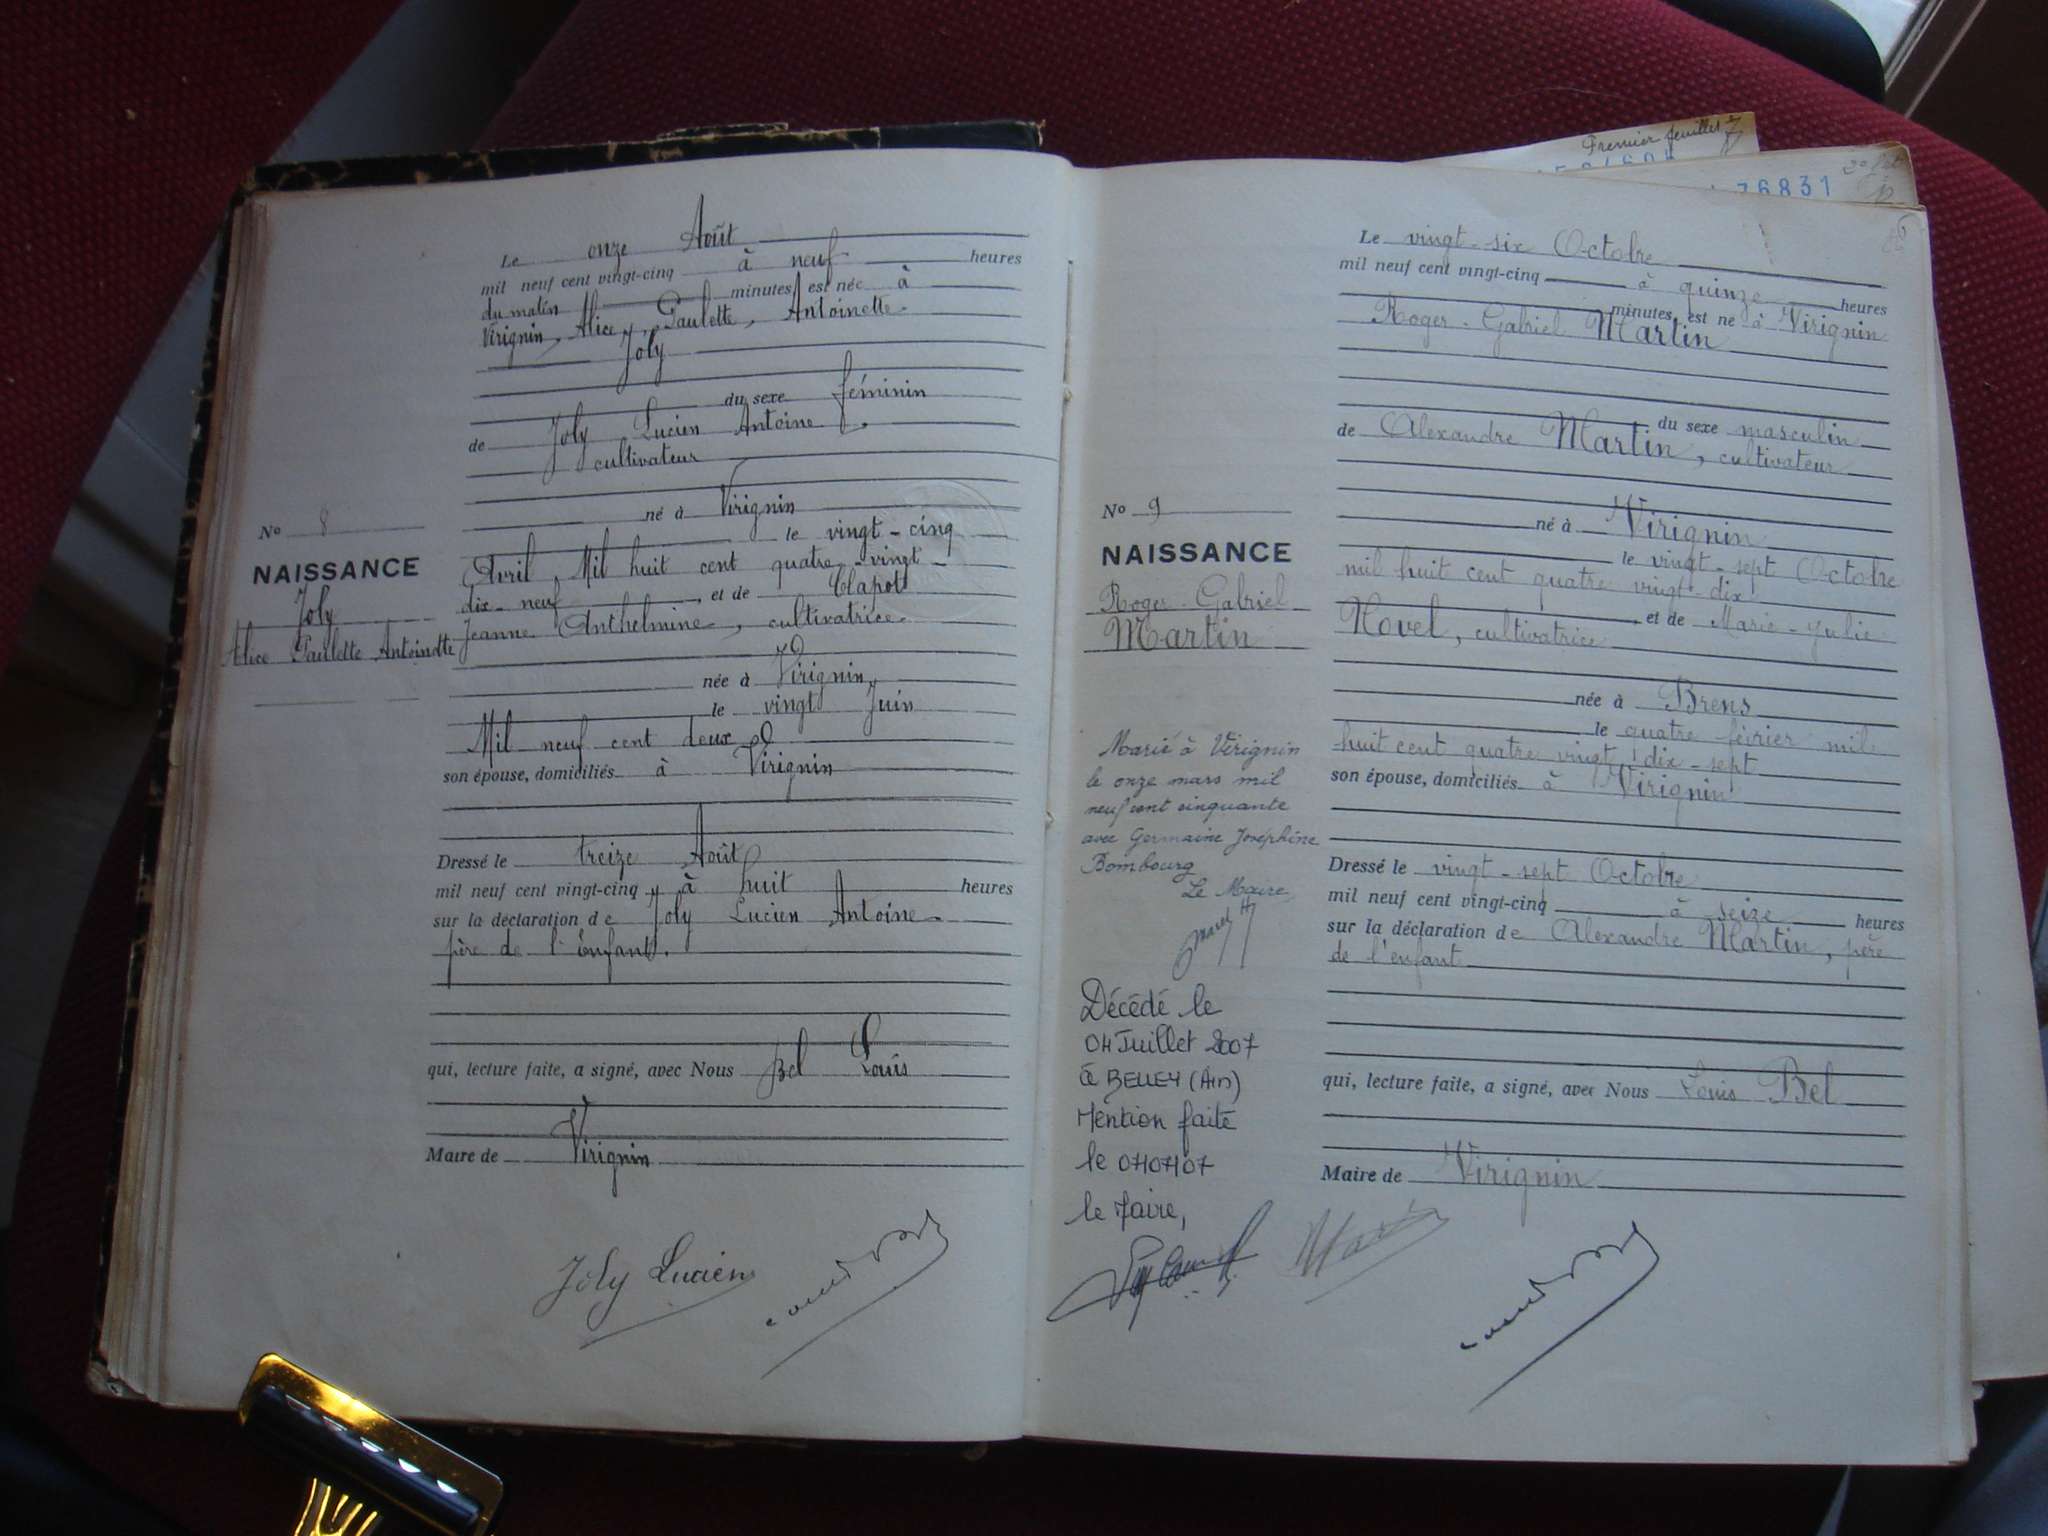 Le onze Août
mil neuf cent vingt-cinq à neuf heures
du matin minutes est née à
Virignin, Alice, Paulette, Antoinette
Joly
du sexe féminin
de Joly Lucien Antoine
cultivateur
né à Virignin
le vingt-cinq
Avril, Mil huit cent quatre-vingt-
dix-neuf, et de Clapot
Jeanne Anthelmine, cultivatrice
née à Virignin,
le vingt Juin
Mil neuf cent deux
son épouse, domiciliés à Virignin
Dressé le treize Août
mil neuf cent vingt-cinq, à huit heures
sur la déclaration de Joly Lucien Antoine
père de l'enfant.
qui, lecture faite, a signé, avec Nous Bel Louis
Maire de Virignin
Joly Lucien
No 8
NAISSANCE
Joly
Alice Paulette Antoinette
Premier feuillet
76831
Le vingt-six Octobre
mil neuf cent vingt-cinq à quinze heures
minutes est né à Virignin
Roger-Gabriel Martin
du sexe masculin
de Alexandre Martin, cultivateur
né à Virignin
le vingt-sept Octobre
mil huit cent quatre vingt-dix
et de Marie-Julie
Novel, cultivatrice
née à Brens
le quatre février mil
huit cent quatre vingt dix-sept
son épouse, domiciliés à Virignin
Dressé le vingt-sept Octobre
mil neuf cent vingt-cinq à seize heures
sur la déclaration de Alexandre Martin, père
de l'enfant
qui, lecture faite, a signé, avec Nous Louis Bel
Maire de Virignin
No 9
NAISSANCE
Roger-Gabriel
Martin
Marié à Virignin
le onze mars mil
neuf cent cinquante
avec Germaine Joséphine
Bombourg
Le Maire
Décédé le
04 Juillet 2007
à BELLEY (Ain)
Mention faite
le 07/07/07
le Maire,
Martin